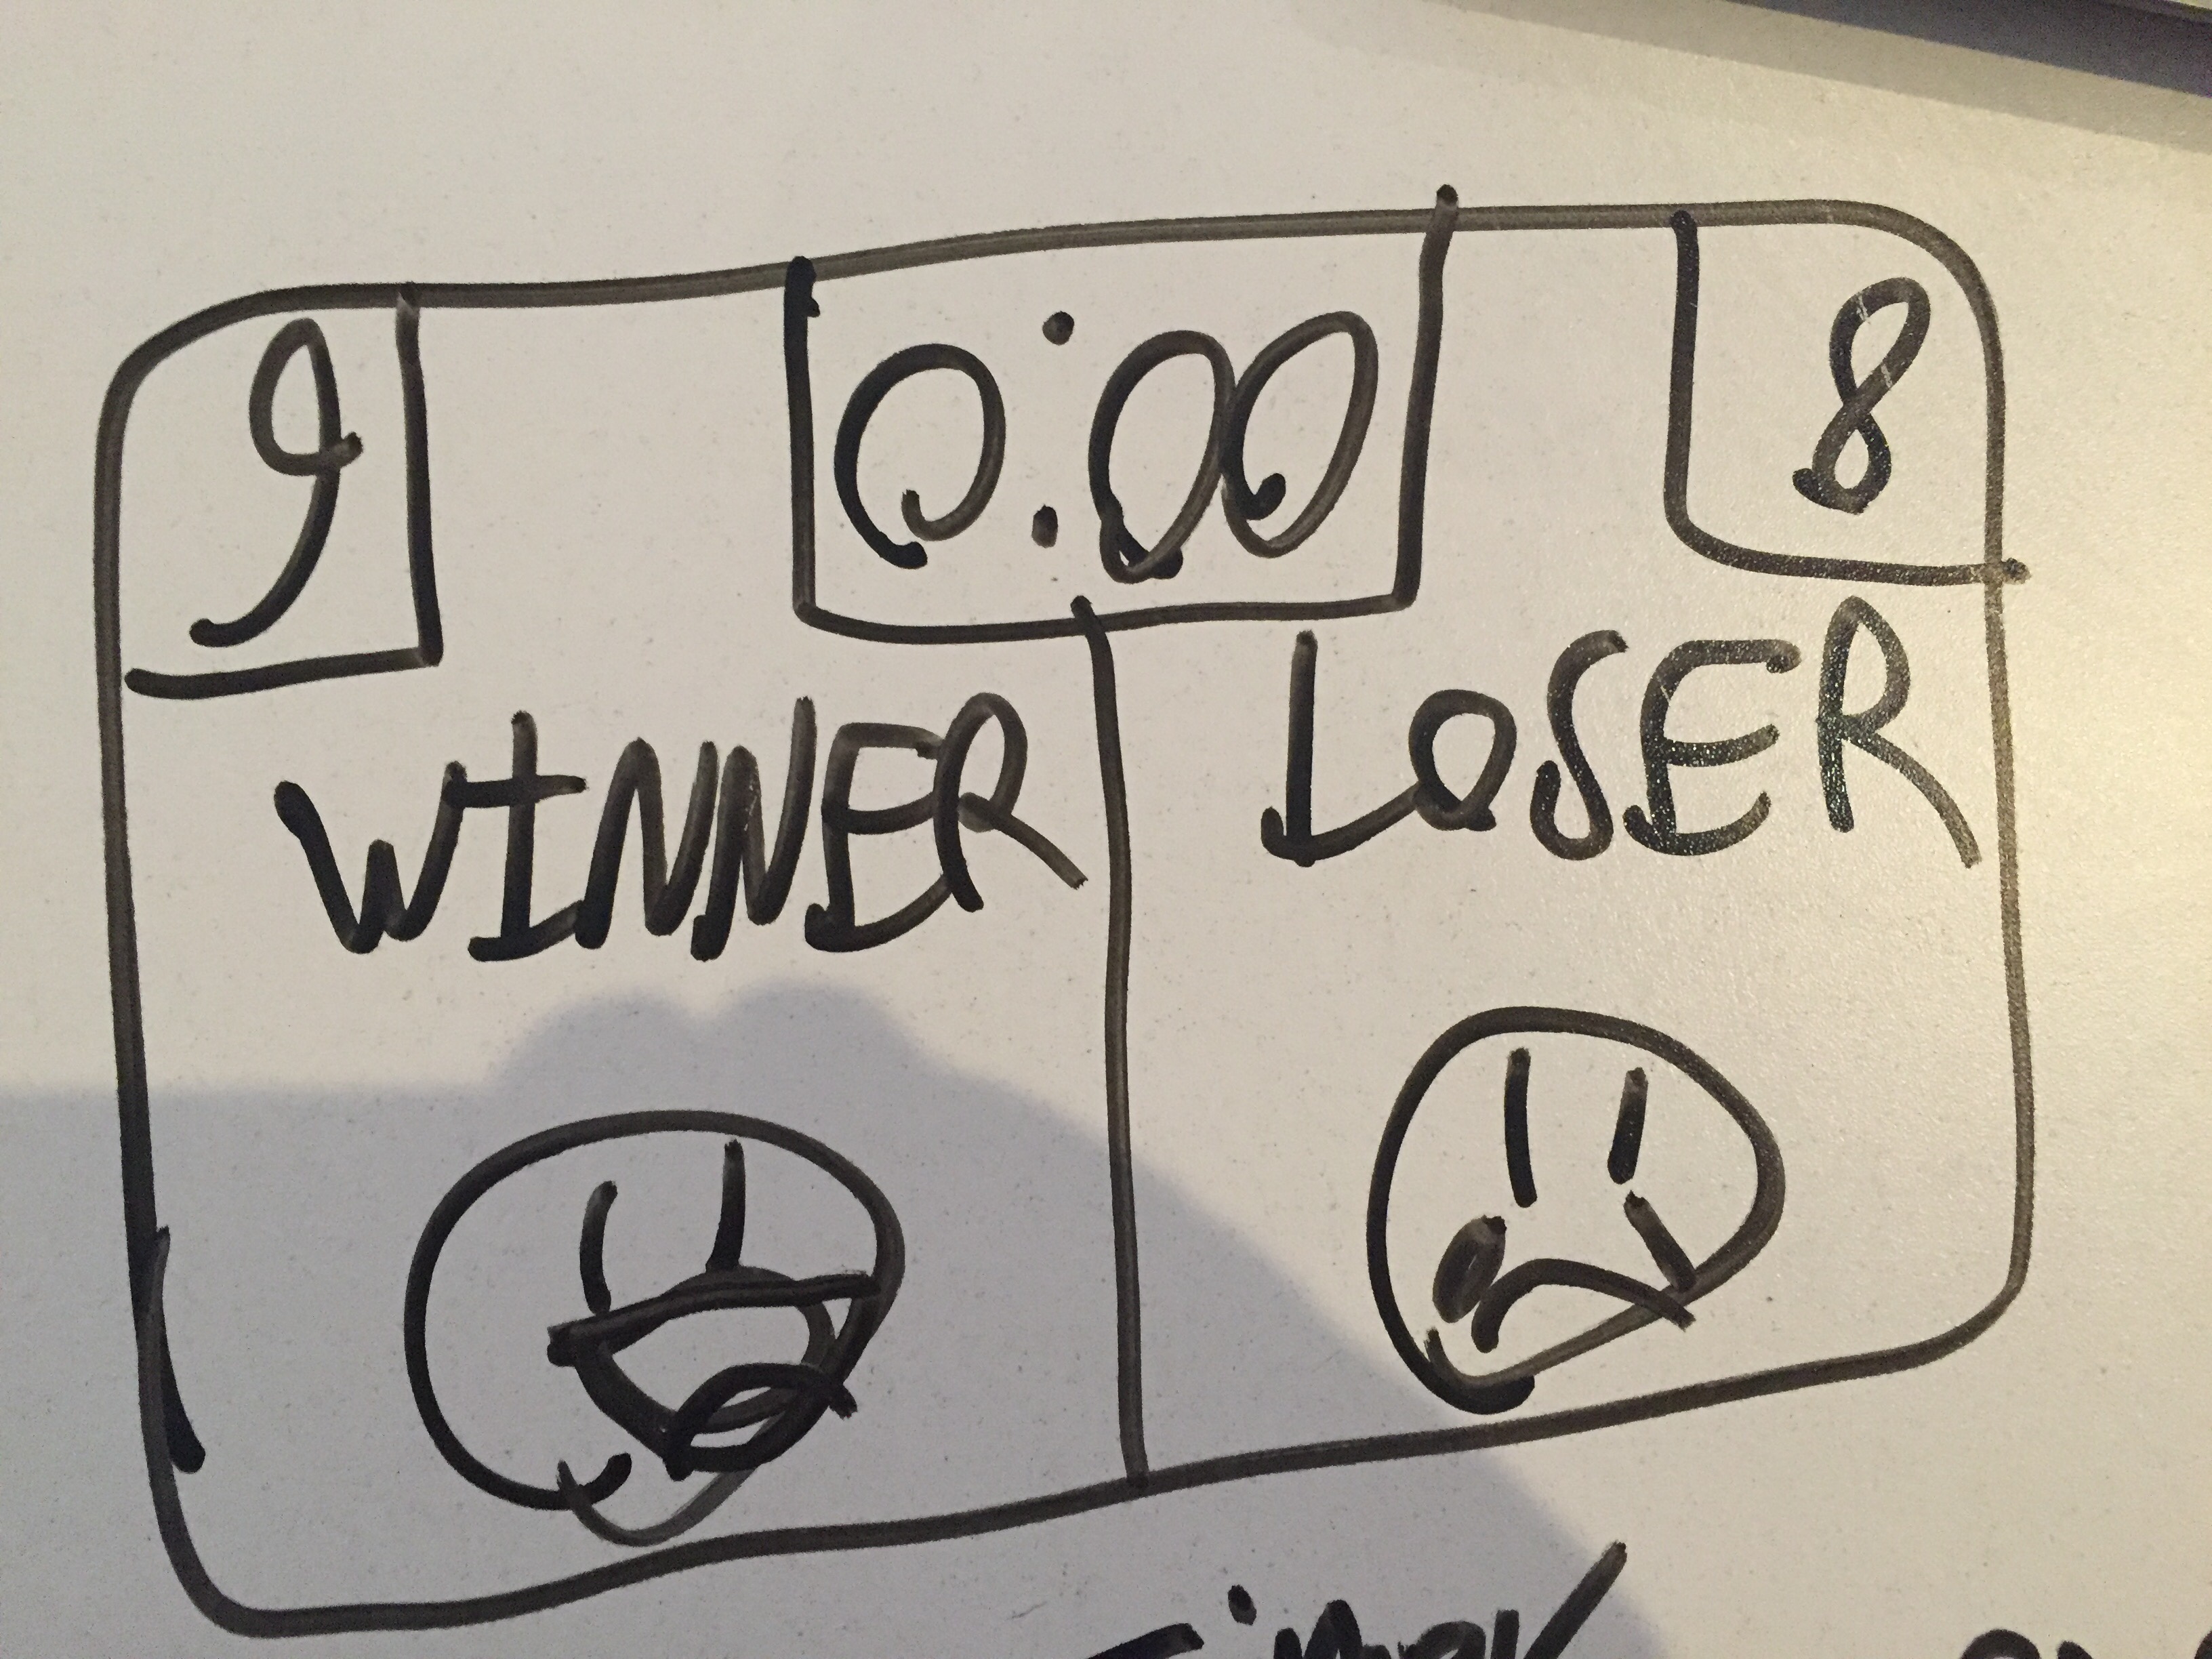 9 0:00 8
WINNER LOSER